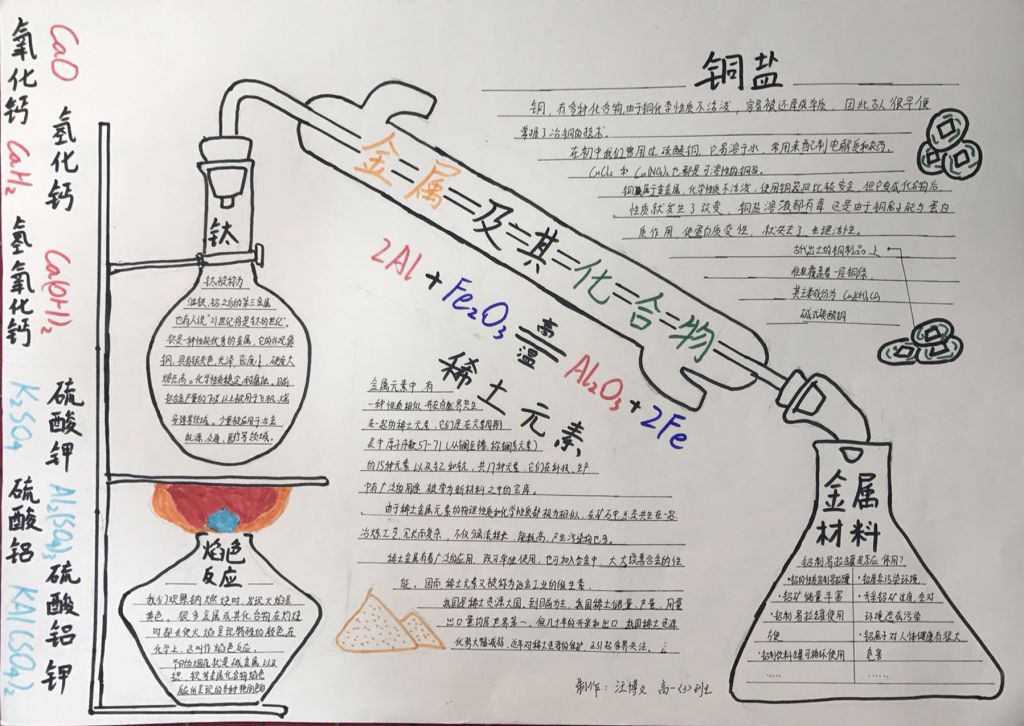 氧化钙
CaO
氢化钙
CaH₂
氢氧化钙
Ca(OH)₂
硫酸钾
K₂SO₄
硫酸铝
Al₂(SO₄)₃
硫酸铝钾
KAl(SO₄)₂
金属及其化合物
2Al+Fe₂O₃ 高温 Al₂O₃+2Fe
铜盐
铜,有多种化合物,由于铜化学性质不活泼,容易被还原成单质,因此古人很早便
掌握了冶铜的技术.
在初中我们曾用过硫酸铜,它易溶于水,常用来配制电解质和农药.
CuCl₂ 和 Cu(NO₃)₂也都是可溶性的铜盐.
铜属于重金属,化学性质不活泼,使用铜器皿比较安全,但它变成化合物后
性质就发生了改变,铜盐溶液都有毒,这是由于铜离子能与蛋白
质作用,使蛋白质变性,就失去了生理活性.
古代出土的铜制品上
往往覆盖着一层铜绿
其主要成分为
碱式碳酸铜
钛
钛被称为
继铁、铝之后的第三金属
也有人说"21世纪将是钛的世纪".
钛是一种性能优秀的金属,它的外观像
钢,具有银灰色光泽,密度小,硬度大
熔点高,化学性质稳定
焰色反应
我们观察钠燃烧时,发现火焰呈
黄色,很多金属或其化合物在灼烧
时都会使火焰呈现特殊的颜色,在
化学上,这叫作焰色反应.
节日的烟花就是碱金属,以及
锶、钡等金属化合物焰色
反应所呈现的各种艳丽色彩
稀土元素
金属元素中,有
一种性质相似,并在自然界共生
在一起的稀土元素,它们是在元素周期
表中原子序数57-71(从镧至镥,称镧系元素)
的15种元素以及钇和钪,共17种元素,它们在科技、生产
中有广泛的用途,被誉为新材料之中的宝库.
由于稀土金属元素的物理性质和化学性质都极为相似,在矿石中总是共生在一起
冶炼工艺冗长而复杂,不仅分离流程长,能耗高,产生污染物也多.
稀土金属有着广泛的应用,既可单独使用,也可加入合金中,大大改善合金的性
能,因而稀土元素又被称为冶金工业的维生素.
我国是稀土资源大国,到目前为止,我国稀土储量、产量、用量
出口量均居世界第一,但几十年的开采和出口,我国稀土资源
优势大幅减弱,近年对稀土资源的保护,正引起各界关注.
金属材料
铝制易拉罐是否应作用?
·铝的性质适制易拉罐
·铝矿储量丰富
·铝制易拉罐使用
方便
·铝制饮料罐可循环使用
……
·铝废弃污染环境
·开采铝矿过度,会对
环境造成污染
·铝离子对人体健康有很大
危害
……
制作:汪博文 高一(3)班